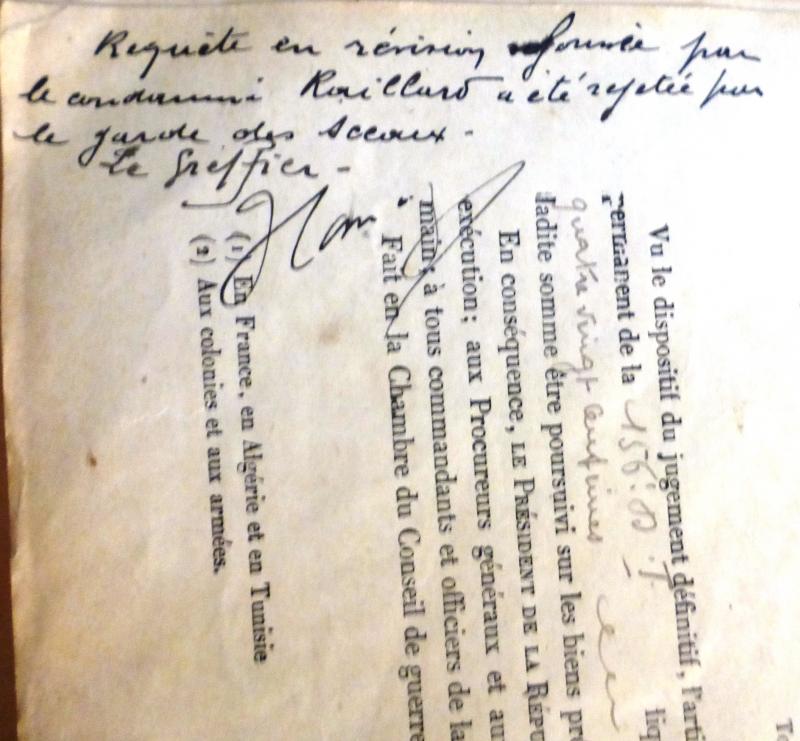 Requête en révision formée par
le condamné Raillard a été rejetée par
le garde des Sceaux.
Le Greffier.
Vu le dispositif du jugement définitif, l'arti
permanent de la 156. D. T.
quatre vingt centimes
ladite somme être poursuivi sur les biens pré
En conséquence, LE PRÉSIDENT DE LA RÉPU
exécution; aux Procureurs généraux et au
main; à tous commandants et officiers de la
Fait en la Chambre du Conseil de guerre
(1) En France, en Algérie et en Tunisie
(2) Aux colonies et aux armées.